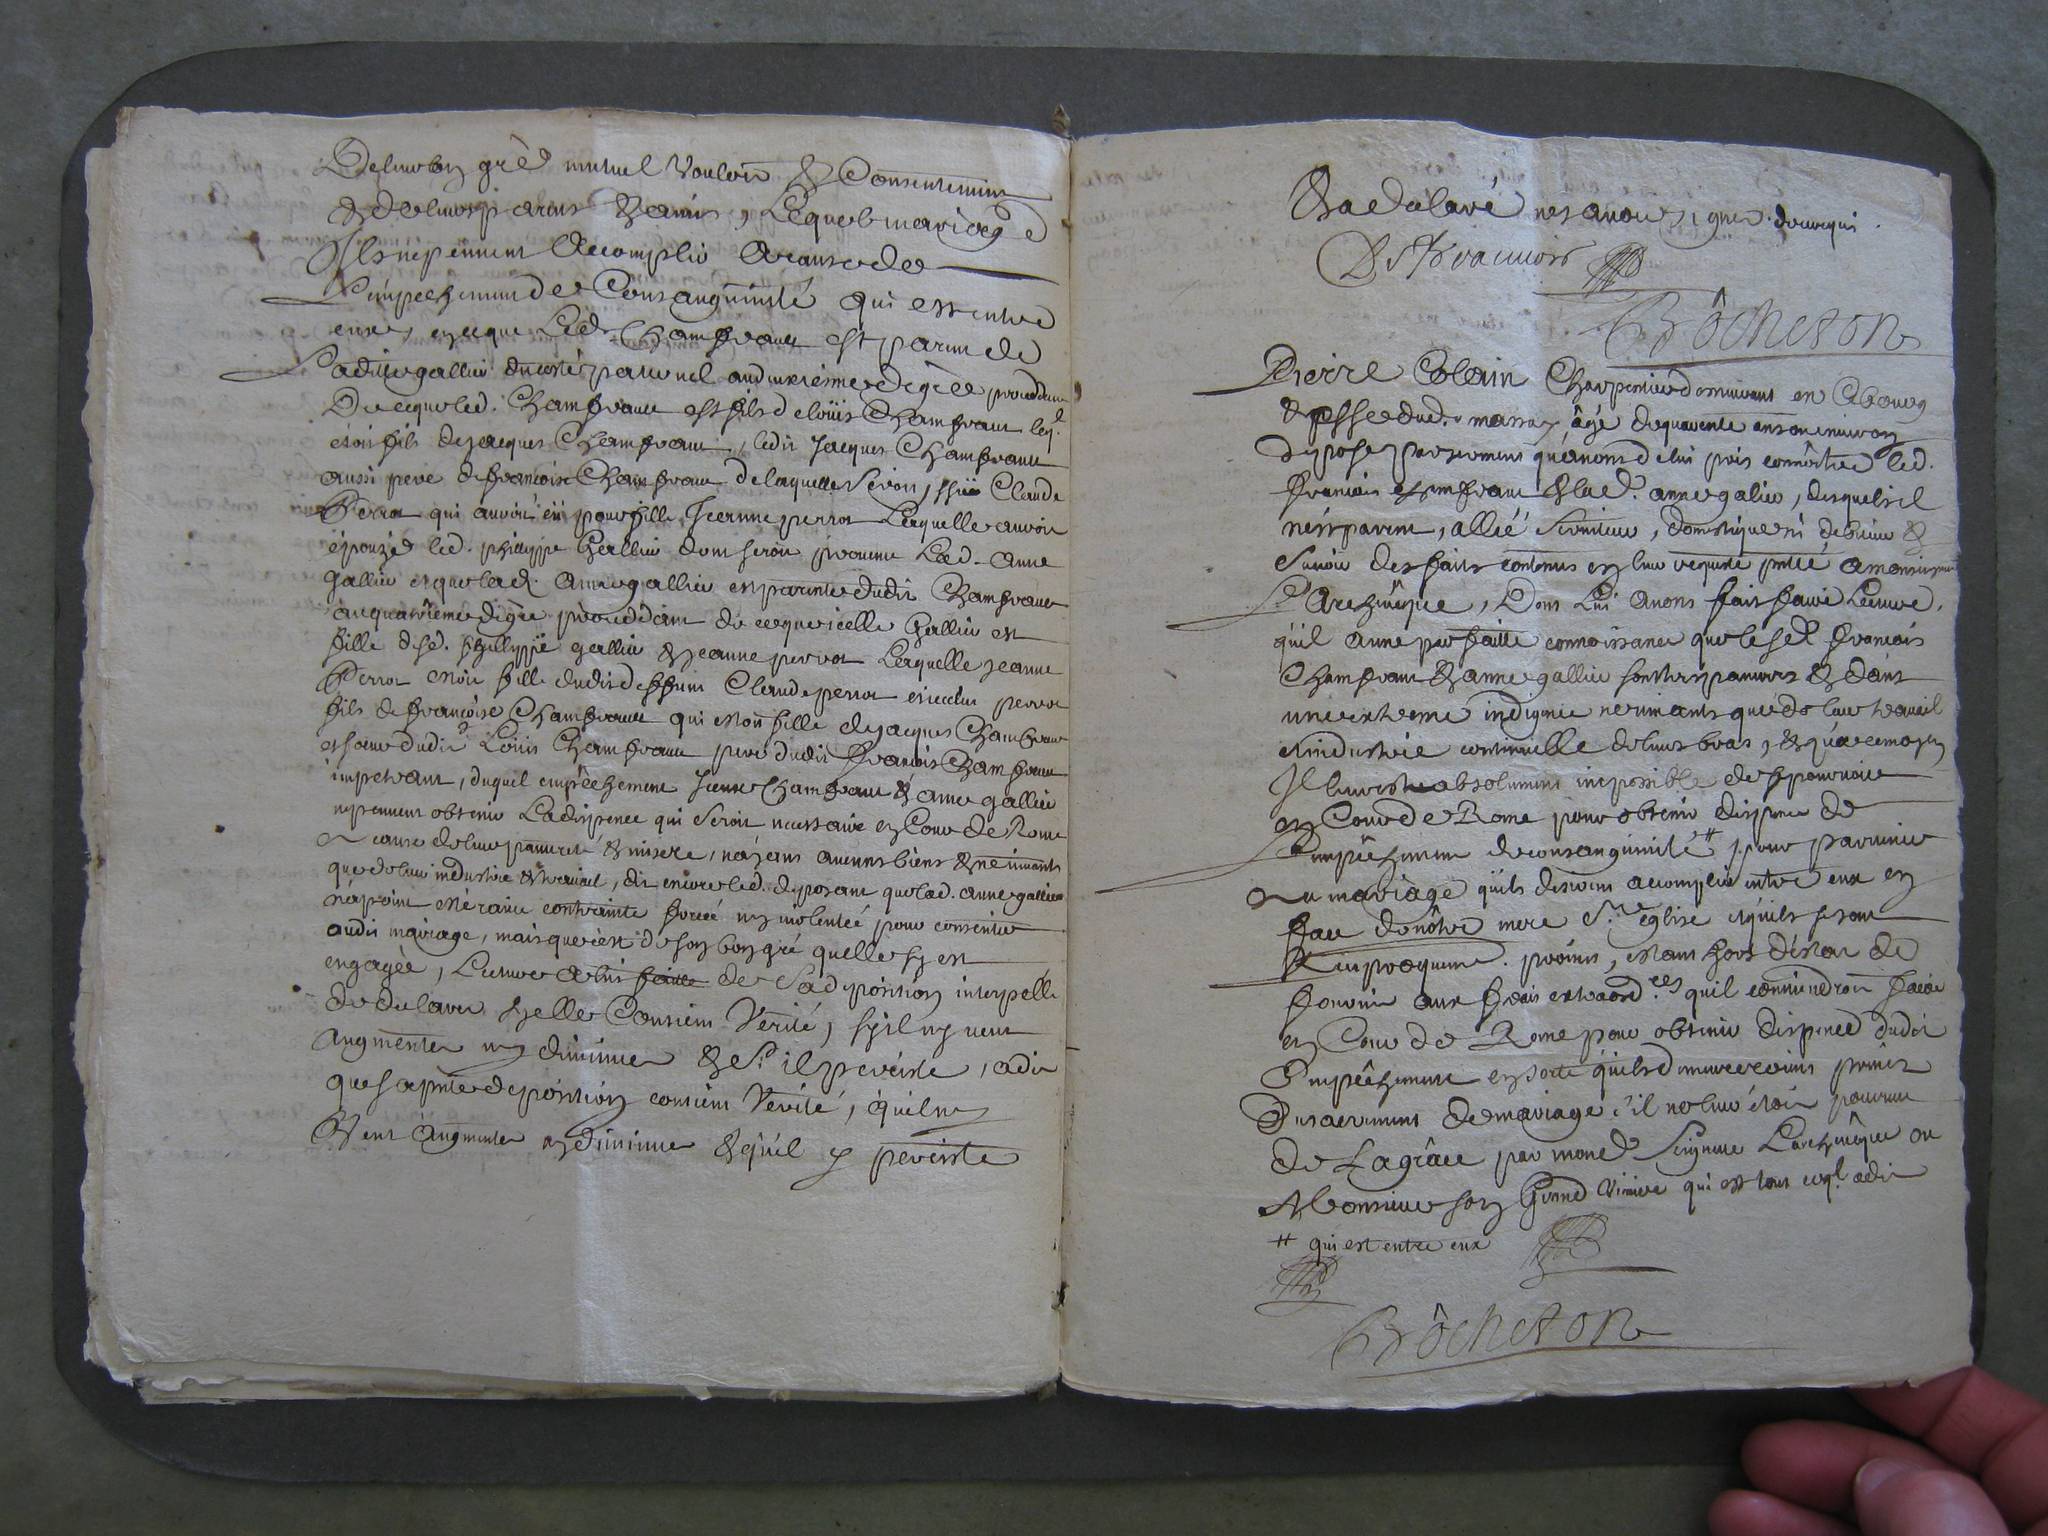 De leur bon gré mutuel Vouloir & Consentement
& de leurs parens & amis, Lequel mariage
Ils ne peuvent accomplir a cause de
L'empeschement de Consanguinité qui est entre
eux en ce que Led. Chamfrault est parent de
Ladite gallier du costé paternel au deuxième degrée procédant
De ce que led. Chamfrault est fils de Loüis Chamfrault leql.
étoit fils de Jacques Chamfrault, ledit Jacques Chamfrault
aussi pere de françoise Chamfrault de laquelle seroit issüe Claude
Perrot qui auroit eü pour fille Jeanne perrot Laquelle auroit
épouzé led. philippe Gallier dont seroit provenue Lad. Anne
gallier et que lad. Anne gallier est parente dudit Chamfrault
au quatrième degrée procédant de ce que icelle Gallier est
fille de fd. philippe gallier & Jeanne perrot Laquelle Jeanne
Perrot étoit fille dudit deffunt Claude perrot et icelui perrot
fils de françoise Chamfrault qui étoit fille de Jacques Chamfrault
et sœur dudit Loüis Chamfrault pere dudit françois Chamfrault
impetrant, duquel empêchement Chamfrault & anne gallier
ne peuvent obtenir La dispence qui seroit necessaire en Cour de Rome
a cause de leur pauvreté & misere, n'ayans aucuns biens & ne vivants
que de leur industrie & travail, dit encore led. deposant que lad. anne gallier
n'a point été ravie contrainte forcée ny violentée pour consentir
audit mariage, mais que c'est de son bon gré quelle sy est
engagée, Lecture a lui faitte de sa deposition interpellé
de declarer sy elle Contient Verité, sy il ny veut
augmenter ny diminuer & s'il y persiste, a dit
que sa pnte deposition contient Vérité, qu'il ne
Veut augmenter ny diminuer & qu'il y persiste
& a declaré ne sçavoir signer de ce requis.
Bôcheton
Pierre Colain Charpentier demeurant en Ce bourg
& psse dud. massay âgé de quarente ans ou environ
depose par serment qu'avons de lui pris connôitre led.
françois Chamfrault & lad. anne galier, desquels il
n'est parent, allié serviteur, domestique ni debiteur &
sçavoir des faits contenus en leur requeste pntée a monseigneur
L'Archevêque, Dont Lui avons fait faire Lecture,
qu'il a une parfaitte connoissance que lesd. françois
Chamfrault & anne gallier sont tres pauvres & dans
une extreme indigence ne vivants que de leur travail
& industrie continuelle de leurs bras, & qu'a ce moyen
Il leur est absolument impossible de se pourvoir
en Cour de Rome pour obtenir dispence de
L'empêchement de consanguinité # pour parvenir
au mariage qu'ils desirent accomplir entre eux en
face de nôtre mere Ste église & qu'ils se sont
Reciproquemt. promis, étans hors d'état de
fournir aux frais extraord.res qu'il conviendroit faire
en Cour de Rome pour obtenir dispence dudit
Empêchement en sorte qu'ils demeureroient privés
Du sacrement de mariage s'il ne leur étoit pourvu
de La grâce par mond. Seigneur L'archevêque ou
Monsieur son Grand Vicaire qui est tout ce ql. a dit
# qui est entre eux
Bôcheton